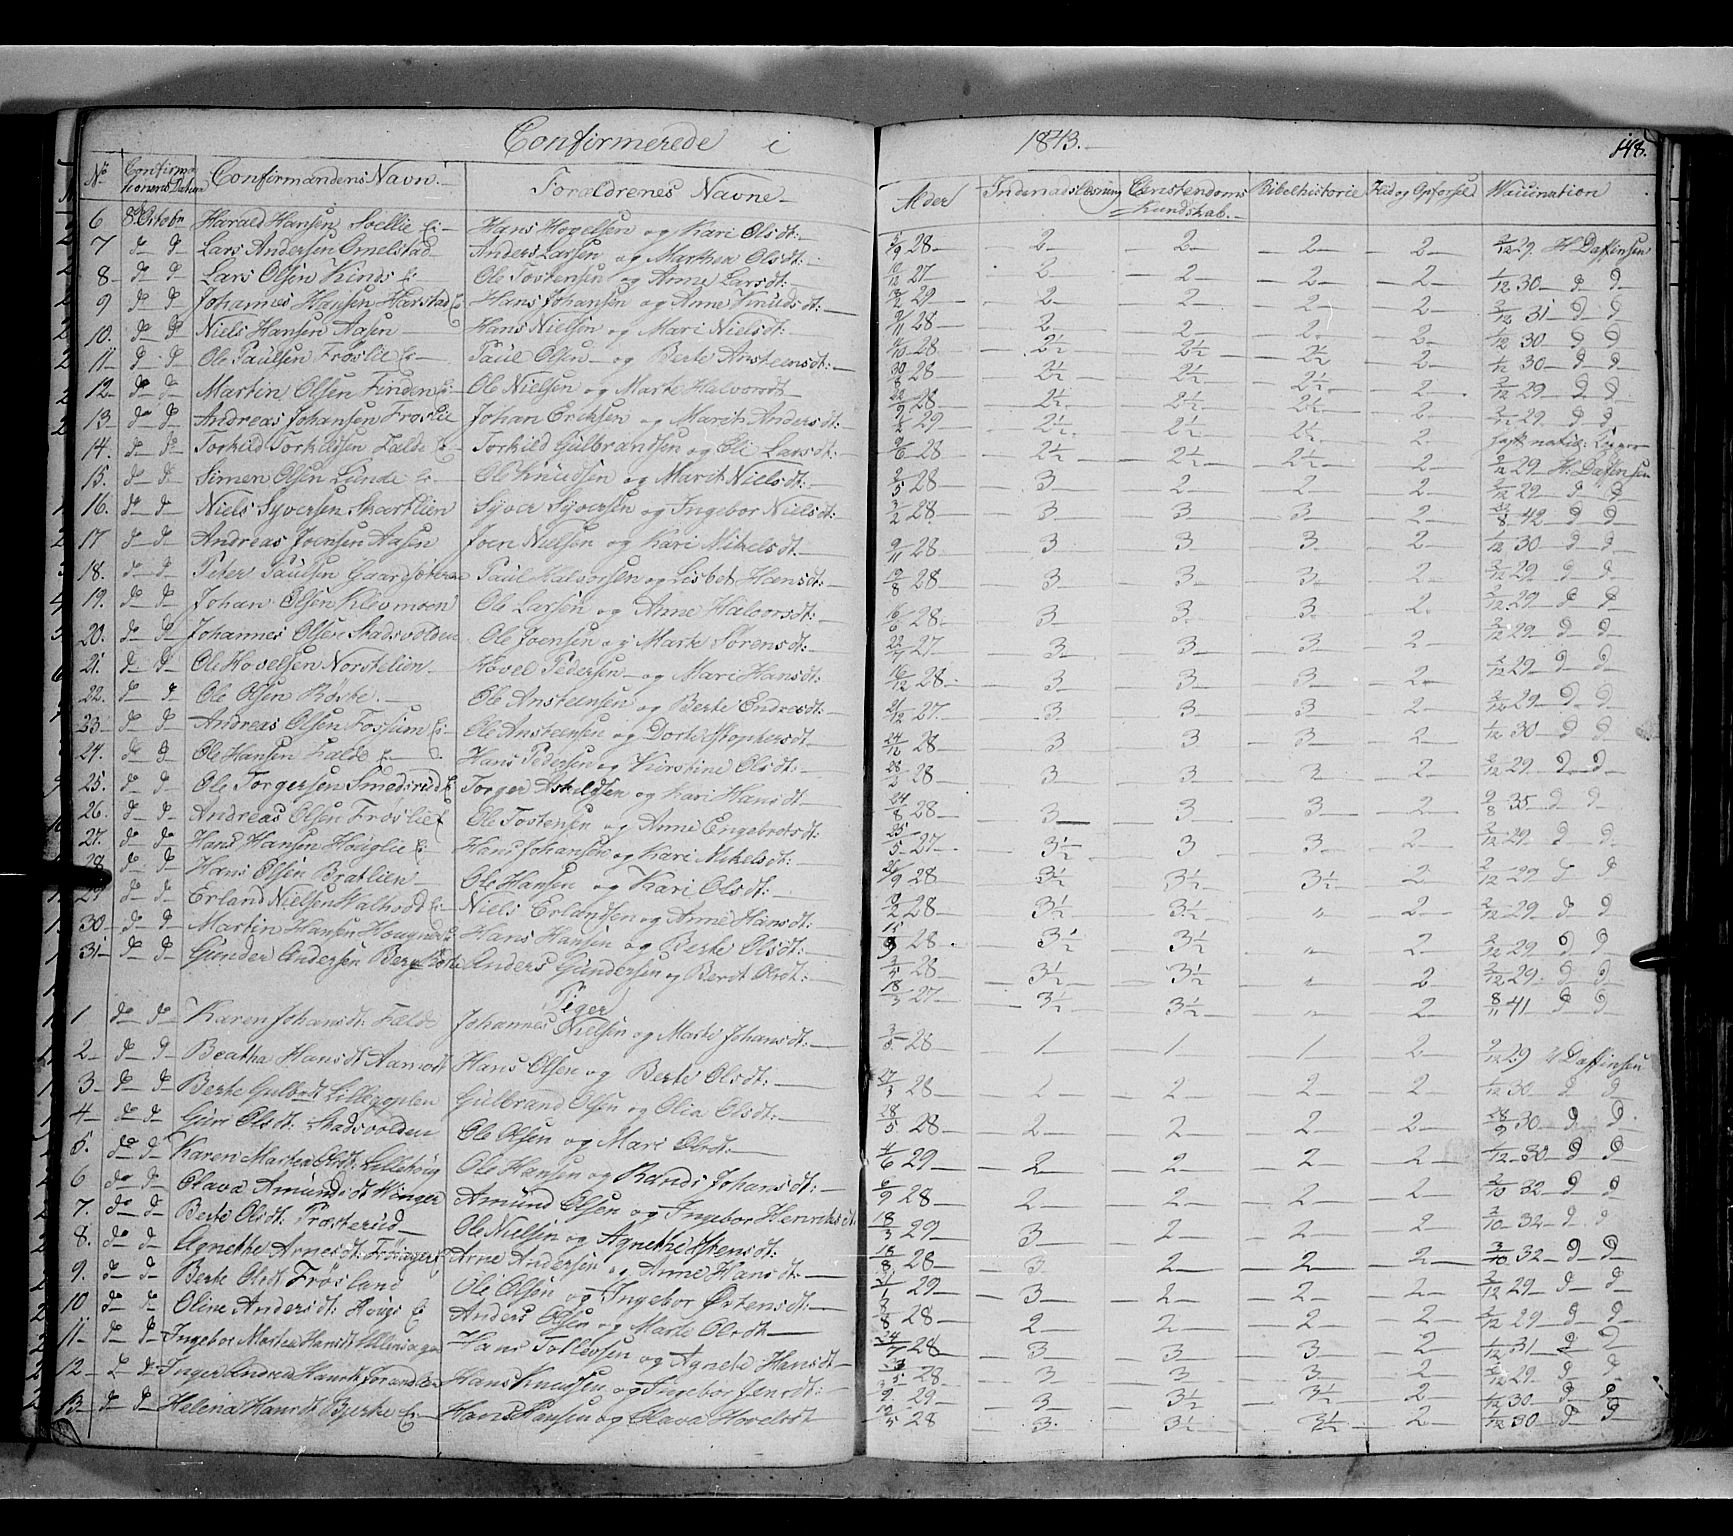 Confirmerede i 1843.- 148.
No Confirmationens Datum Confirmandens Navn. Forældrenes Navne Alder Indenadslæsning Christendoms Kundskab.- Bibelhistorie Flid og Opførsel Vaccination
6 8 Octobr Harald Hansen Sollie Ei- Hans Hovelsen og Kari Olsdt:- 28 2- 2- 2- 2- 2/12 29. H Daffinsen
7 d- d- Lars Andersen Omelstad Anders Larsen og Marthea Olsdt:- 12 27 2- 2- 2- 2- 1/12 30- d d-
8- d d- Lars Olsen Kinds Ei Ole Tostensen og Anne Larsdt:- 29- 2- 2- 2- 2- 2/12 31 d- d-
9 d- d- Johannes Hansen Harstad Ei Hans Johansen og Anne Knudsdt:- 9/11 28 2- 2- 2- 2- 1/12 30 d- d-
10. d- d- Niels Hansen Aasen Hans Nielsen og Mari Nielsdt:- 28 2½ 2½ 2½ 2- 1/12 30- d- d-
11- d- d- Ole Paulsen Frøslie Ei- Paul Olsen- og Berte Ansteensdt:- 30/8 28 2½ 2½ 2½ 2- 2/12 29- d- d-
12- d- d- Martin Olsen Finden Ei- Ole Nielsen og Marte Halvorsdt- 22/9 28 2½- 2½- 2½- 2- 2/12 29- d- d-
13- d- d- Andreas Johansen Froslie Johan Ericksen og Marit Andersdt:- 29 2½- 2½- 2½- 2.
14. d- d- Torkild Torkildsen Falde Ei- Torkild Gulbrandsen og Oli Larsdt:- 9/6 28 2½- 2½- 2½- 2 2/12 29- H: Dafinsen
15. d- d- Simen Olsen Lunde Ei- Ole Knudsen og Marit Nielsdt:- 2/5 28 3 2- 2 2- 2/12 29- d d-
16. d- d- Niels Syversen Skartlien Syver Syversen og Ingebor Nielsdt:- 3/2 28 3 3- 3- 2- 8 42 d d-
17 d- d- Andreas Joensen Aasen Joen Nielsen og Kari Mikelsdt- 9/11 28 3 3- 3- 2- 1/12 30 d- d-
18. d- d- Peter Paulsen Paul Halvorsen og Lisbet Hansdt:- 19/8 28 3 3- 3- 2- 2/12 29- d- d-
19. d- d- Johan Olsen Klevmoen Ole Larsen og Anne Halvorsdt:- 16/6 28- 3 3- 3- 2- 2/12 29- d d-
20. d- d- Johannes Olsen Stadsvolden Ole Joensen og Marte Sorensdt:- 22/7 27 3- 3- 3- 2- 2/12 29 d- d-
21. d- d- Ole Hovelsen Norstelien Hovel Pedersen- og Mari Hansdt:- 16/12 28. 3 3 3- 2- 2/12 29- d- d-
22. d- d Ole Olsen Røste.- Ole Ansteensen og Berte Endresdt:- 21/12 27 3 3 3- 2- 2/12 29- d- d-
23- d- d- Andreas Olsen Fossum Ei- Ole Ansteensen og Dorte 24/12 28 3 3- 3- 2- 1/12 30 d- d-
24. d- d- Ole Hansen Falde Ei- Hans Pedersen og Kirstine Olsdt:- 28/2 28 3 3- 3- 2 2/12 29- d- d-
25. d- d- Ole Torgersen Smedsrud Ei Torger Askildsen og Kari Hansdt- 24/8 28 3- 3- 3- 2 9/8 35 d d-
26. d- d- Andreas Olsen Frøslie Ei Ole Tostensen og Anne Engebretsdt: 25/5 27- 3½ 3 3- 2- 2/12 29- d- d-
27. d- d- Hans Hansen Houglie Ei- Hans Johansen og Kari Mikelsdt: 26/9 28 3½ 3½- 3½- 2- 2/12 29 d d-
28 d- d- Hans Olsen Bratlien- Ole Hansen og Kari Olsdt:- 28 3½ 3½- „ 2- 2/12 29- d- d-
29 d- d- Erland Nielsen Ei- Niels Erlandsen og Anne Hansdt: 15 28 3½ 3½ „ 2- 2/12 29 d d-
30- d- d- Martin Hansen Ei Hans Hansen og Berte Olsdt:- 3/5 28 3½ 3½ „ 2 2/12 29. d d-
31- d- d- Gunder Andersen Berg Anders Gundersen og Berit Olsdt:- 18/3 27 3½ 3½ „ 2 8/11 41 d d-
Piger
1 d- d- Karen Johansdt: Fælde Johannes Nielsen og Marte Johansdt:- 3/5 28 1 1 1 2 2/12 29 H Daffinsen
2- d- d- Beatha Hansdt Aamodt Hans Olsen og Berte Olsdt:- 27/3 28 2 2- 2- 2- 1/12 30- d- d-
3- d- d- Berte Gulbrdt Gulbrand Olsen og Olia Olsdt:- 28/5 28 2- 2- 2- 2- 28/9 30 d d-
4- d- d- Guri Olsdt: Stadsvolden Ole Olsen og Mari Olsdt:- 4/6 29- 2 2- 2- 2- 1/12 30- d d-
5. d- d- Karen Martea Olsdt: Lillehoug Ole Hansen og Randi Johansdt:- 9 28- 2 2- 2- 2- 2/10 32- d- d-
6 d- d- Olava Amundsdt Winger Amund Olsen og Ingebor Henriksdt 18/3 29- 3- 2- 2- 2 2/10 32- d d-
7. d- d- Berte Olsdt: Prosterud Ole Nielsen og Agnethe dt: 18/8 28- 3- 2 2- 2- 3/10 32- d- d-
8. d- d- Agnethe Arnesdt: Arne Andersen og Anne Hansdt:- 2/1 29- 3- 2- 2- 2- 2/12 29- d- d-
9. d- d- Berte Olsdt Frøsland Ole Olsen og Ingebor dt:- 8/8 28- 2 2- 2- 2- 2/12 29- d- d-
10 d- d- Oline Andersdt: Hougs Ei Anders Olsen og Marte Olsdt- 24/7 28 3- 3- 3- 2 1/12 31- d- d-
11- d- d- Ingebor Martea Hansdt Hans Tollevsen og Agnete Hansdt- 28- 3- 3- 3 2- 2/12 29- d d-
12- d d- Inger Andrea Hansdt Hans Knudsen og Ingebor dt:- 29- 3- 3½- 3½- 2- 1/12 30- d- d-
13- d d- Helena Hansdt Bjerke Ei- Hans Hansen og Olava Hovelsdt 10/5 28 3- 3½- 3½- 2- 1/12 30- d d